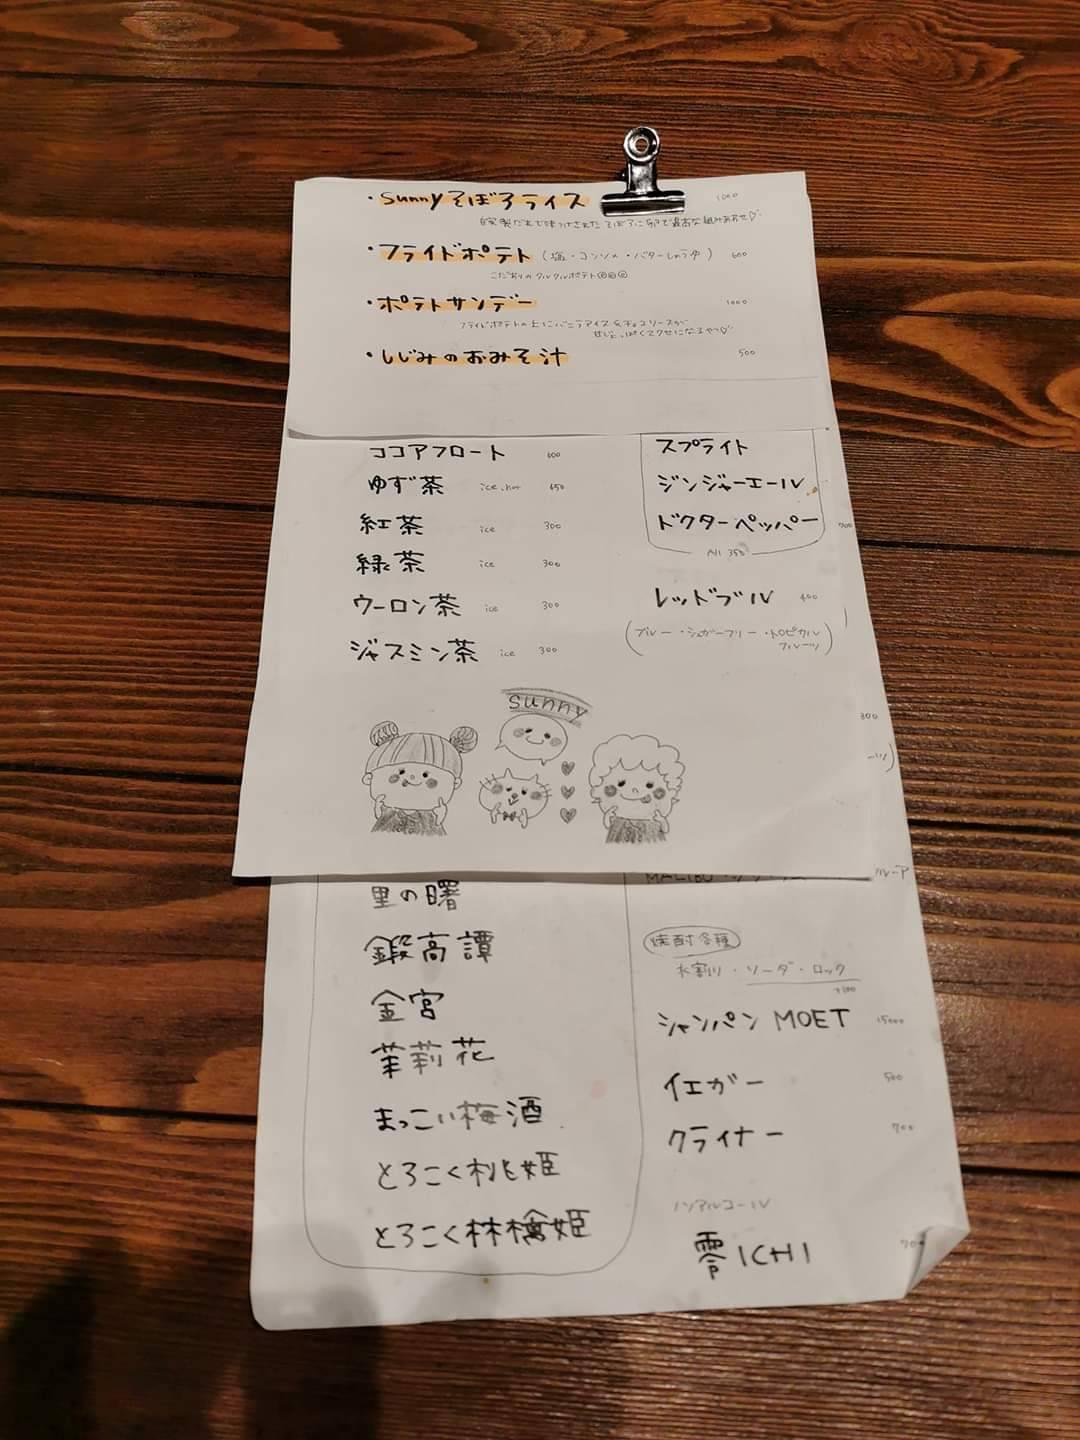 ・sunnyそぼろライス 1000
自家製だれで味つけされたそぼろに卵で最高な組み合わせ♡
・フライドポテト (塩・コンソメ・バターしょうゆ) 600
こだわりのクルクルポテト
・ポテトサンデー 1000
フライドポテトの上にバニラアイス&チョコソースが
甘じょっぱくてクセになるやつ♡
・しじみのおみそ汁 500
ココアフロート 600
ゆず茶 ice.hot 450
紅茶 ice 300
緑茶 ice 300
ウーロン茶 ice 300
ジャスミン茶 ice 300
スプライト
ジンジャーエール
ドクターペッパー
All 350
700
レッドブル 400
(ブルー・シュガーフリー・トロピカル
フルーツ)
sunny
300
ーツ)
MALIBU
ルーア
里の曙
鍛高譚
金宮
茉莉花
まっこい梅酒
とろこく桃姫
とろこく林檎姫
焼酎各種
水割り・ソーダ・ロック
+100
シャンパン MOET 15000
イエガー 500
クライナー 700
ノンアルコール
零ICHI 700